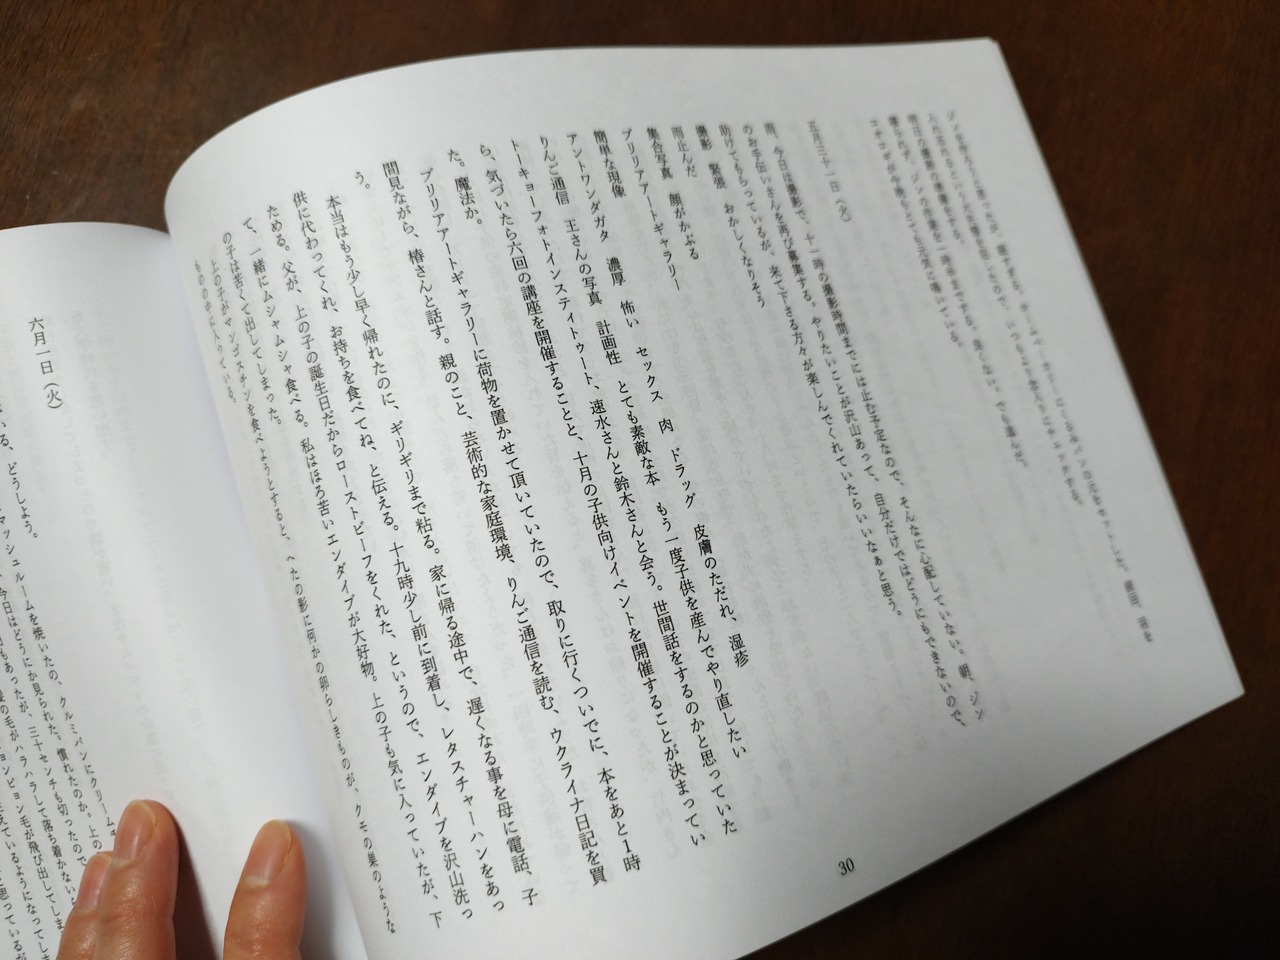 五月三十一日（火）
雨、今日は撮影で、十一時の撮影時間までには止む予定なので、そんなに心配していない。朝、ジン
のお手伝いさんを再び募集する。やりたいことが沢山あって、自分だけではどうにもできないので、
助けてもらっているが、来て下さる方々が楽しんでくれていたらいいなぁと思う。
撮影　緊張　おかしくなりそう
雨止んだ
集合写真　顔がかぶる
ブリリアアートギャラリー
簡単な現像
アントワンダガタ　濃厚　怖い　セックス　肉　ドラッグ　皮膚のただれ、湿疹
りんご通信　王さんの写真　計画性　とても素敵な本　もう一度子供を産んでやり直したい
トーキョーフォトインスティトゥート、速水さんと鈴木さんと会う。世間話をするのかと思っていた
ら、気づいたら六回の講座を開催することと、十月の子供向けイベントを開催することが決まってい
た。魔法か。
ブリリアアートギャラリーに荷物を置かせて頂いていたので、取りに行くついでに、本をあと１時
間見ながら、椿さんと話す。親のこと、芸術的な家庭環境、りんご通信を読む、ウクライナ日記を買
う。
本当はもう少し早く帰れたのに、ギリギリまで粘る。家に帰る途中で、遅くなる事を母に電話、子
供に代わってくれ、お持ちを食べてね、と伝える。十九時少し前に到着し、レタスチャーハンをあっ
ためる。父が、上の子の誕生日だからローストビーフをくれた、というので、エンダイブを沢山洗っ
て、一緒にムシャムシャ食べる。私はほろ苦いエンダイブが大好物。上の子も気に入っていたが、下
の子は苦くて出してしまった。
上の子がマンゴスチンを食べようとすると、へたの影に何かの卵らしきものが、クモの巣のような
ものの中に入っている。
30
六月一日（火）
いる、どうしよう。
マッシュルームを焼いたの、クルミパンにクリームチ
今日はどうにか見られた。慣れたのか。上の
もあったが、三十センチも切ったので
の毛がハラハラして落ち着かない
ピョンピョン毛が飛び出してしま